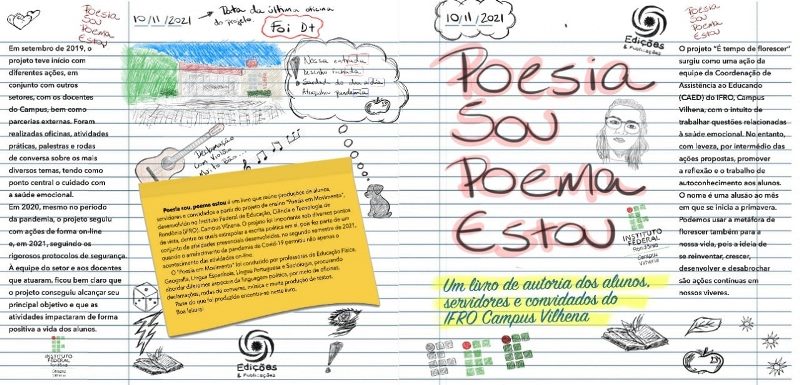 POESIA
SOU
POEMA
ESTOU
Em setembro de 2019, o
projeto teve início com
diferentes ações, em
conjunto com outros
setores, com os docentes
do Campus, bem como
parcerias externas. Foram
realizadas oficinas, atividades
práticas, palestras e rodas
de conversa sobre os mais
diversos temas, tendo como
ponto central o cuidado com
a saúde emocional.
Em 2020, mesmo no período
da pandemia, o projeto seguiu
com ações de forma on-line
e, em 2021, seguindo os
rigorosos protocolos de segurança.
À equipe do setor e aos docentes
que atuaram, ficou bem claro que
o projeto conseguiu alcançar seu
principal objetivo e que as
atividades impactaram de forma
positiva a vida dos alunos.
INSTITUTO
FEDERAL
Rondônia
Campus
Vilhena
10/11/2021
Data da última oficina
do projeto.
Foi D+
Nossa entrada
Desenho
Saudade do dia a dia
pandemia
Declamação
com violão
muito bão...
Poesia sou, poema estou é um livro que reúne produções de alunos,
servidores e convidados a partir do projeto de ensino "Poesia em Movimento",
desenvolvido no Instituto Federal de Educação, Ciência e Tecnologia de
Rondônia (IFRO), Campus Vilhena. O projeto foi importante sob diversos pontos
de vista, dentre os quais extrapolar a escrita poética em si, pois foi parte de um
conjunto de atividades presenciais desenvolvidas, no segundo semestre de 2021,
quando o arrefecimento da pandemia da Covid-19 permitiu não apenas o
acontecimento das atividades on-line.
O "Poesia em Movimento" foi conduzido por professores da Educação Física,
Geografia, Língua Espanhola, Língua Portuguesa e Sociologia, procurando
abordar diferentes aspectos da linguagem poética, por meio de oficinas,
declamações, rodas de conversa, música e muita produção de textos.
Parte do que foi produzido encontra-se neste livro.
Boa leitura!
Edições
& Publicações
10/11/2021
Edições
& Publicações
Poesia
Sou
Poema
Estou
INSTITUTO
FEDERAL
Rondônia
Campus
Vilhena
Um livro de autoria dos alunos,
servidores e convidados do
IFRO Campus Vilhena
POESIA
SOU
POEMA
ESTOU
O projeto "É tempo de florescer"
surgiu como uma ação da
equipe da Coordenação de
Assistência ao Educando
(CAED) do IFRO, Campus
Vilhena, com o intuito de
trabalhar questões relacionadas
à saúde emocional. No entanto,
com leveza, por intermédio das
ações propostas, promover
a reflexão e o trabalho de
autoconhecimento aos alunos.
O nome é uma alusão ao mês
em que se inicia a primavera.
Podemos usar a metáfora de
florescer também para a
nossa vida, pois a ideia de
se reinventar, crescer,
desenvolver e desabrochar
são ações contínuas em
nossos viveres.